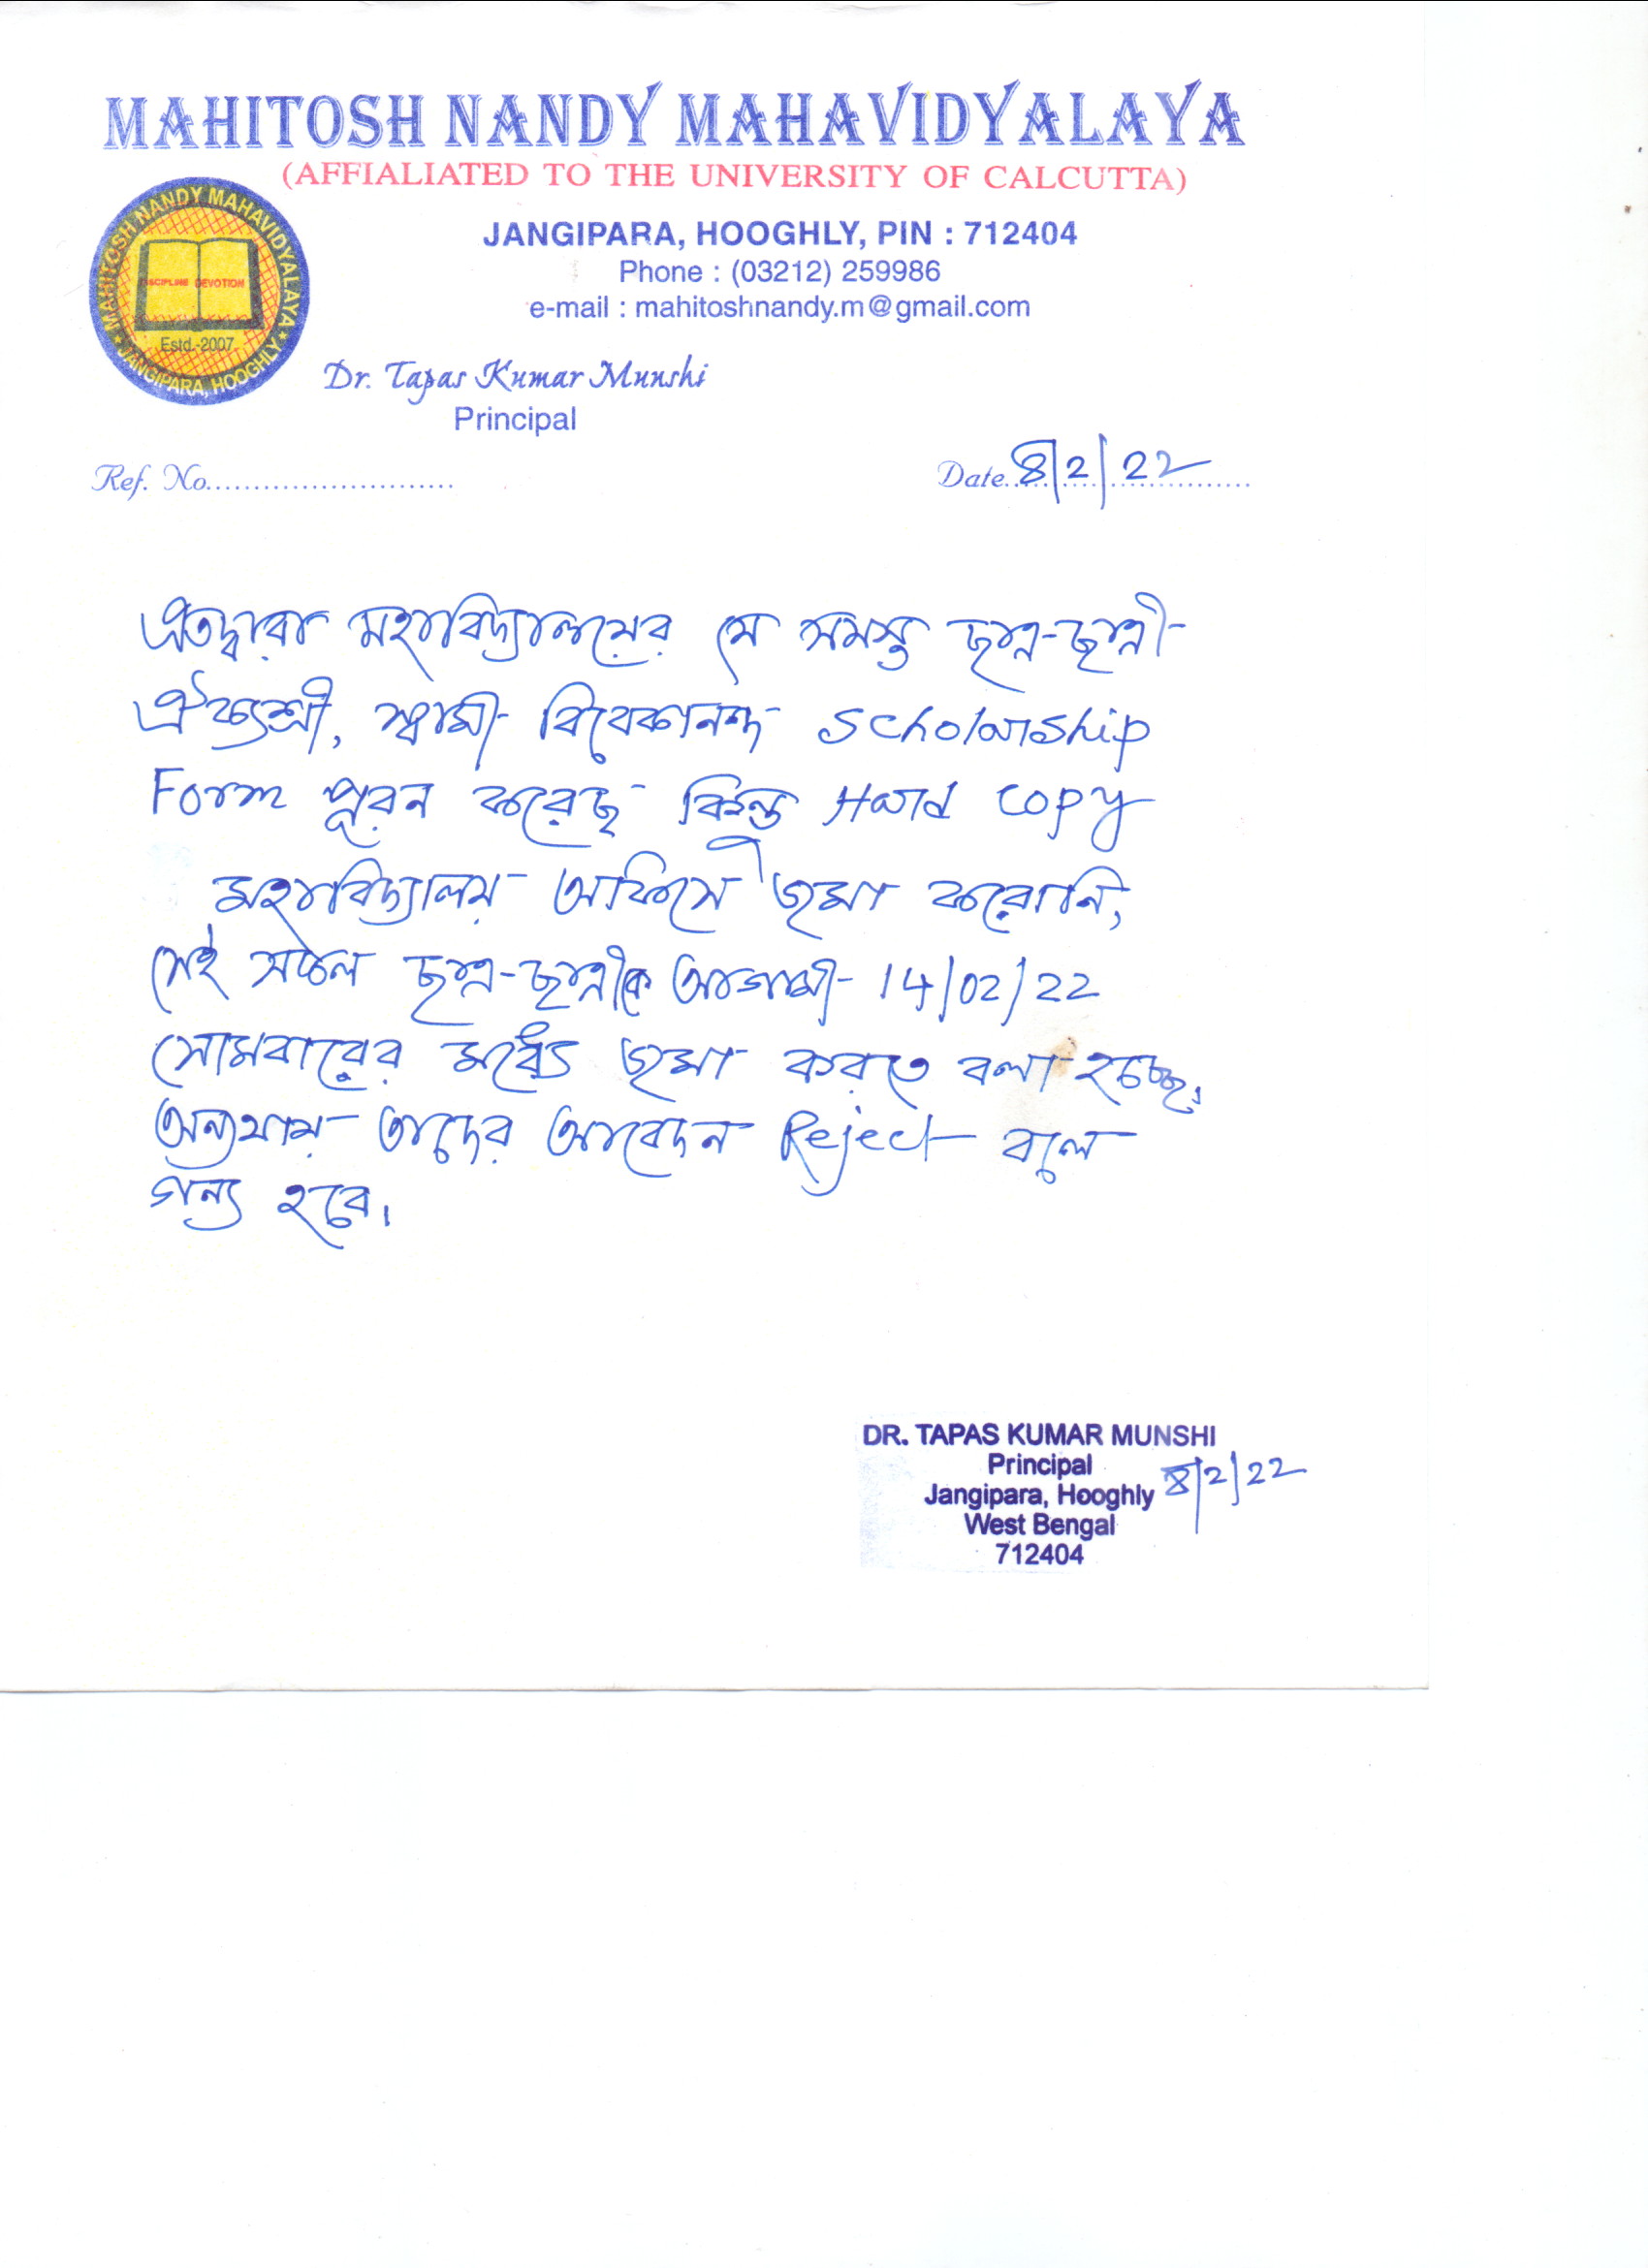 MAHITOSH NANDY MAHAVIDYALAYA
(AFFIALIATED TO THE UNIVERSITY OF CALCUTTA)
MAHITOSH NANDY MAHAVIDYALAYA
DISCIPLINE DEVOTION
Estd.-2007
JANGIPARA, HOOGHLY
JANGIPARA, HOOGHLY, PIN : 712404
Phone : (03212) 259986
e-mail : mahitoshnandy.m@gmail.com
Dr. Tapas Kumar Munshi
Principal
Ref. No..........................
Date 8/2/22
এতদ্বারা মহাবিদ্যালয়ের যে সমস্ত ছাত্র-ছাত্রী
ঐক্যশ্রী, স্বামী বিবেকানন্দ Scholarship
Form পূরন করেছ কিন্তু Hard copy
মহাবিদ্যালয় অফিসে জমা করোনি,
সেই সকল ছাত্র-ছাত্রীকে আগামী 14/02/22
সোমবারের মধ্যে জমা করতে বলা হচ্ছে,
অন্যথায় তাদের আবেদন Reject বলে
গন্য হবে।
DR. TAPAS KUMAR MUNSHI
Principal
Jangipara, Hooghly 8/2/22
West Bengal
712404